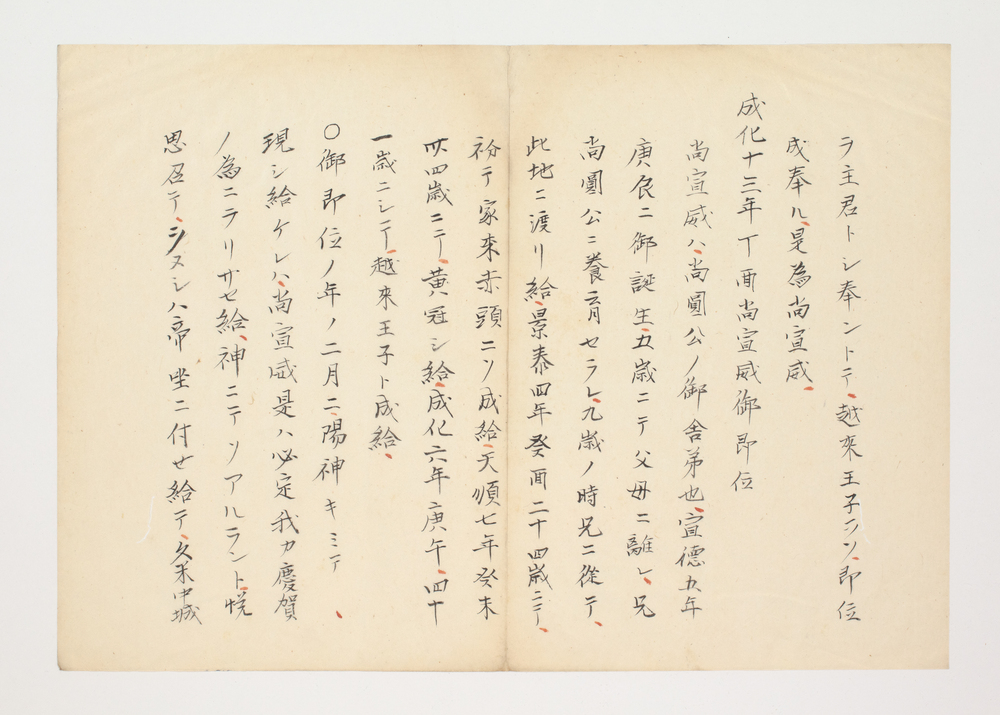 ラ主君トシ奉ントテ、越來王子ヲソ、即位
成奉ル、是為尚宣威、
成化十三年丁酉尚宣威御即位
尚宣威ハ、尚圓公ノ御舎弟也、宣德五年
庚戌ニ御誕生、五歳ニテ父母ニ離レ、兄
尚圓公ニ養育セラレ、九歳ノ時兄ニ從テ、
此地ニ渡リ給、景泰四年癸酉二十四歳ニテ、
初テ家來赤頭ニソ成給、天順七年癸未
卅四歳ニテ、黄冠シ給、成化六年庚午、四十
一歳ニシテ、越來王子ト成給、
〇御即位ノ年ノ二月ニ、陽神キミテ、
現シ給ケレハ、尚宣威是ハ必定我カ慶賀
ノ為ニヲリサセ給、神ニテソアルラント、悦
思召テ、シヌシハ帝坐ニ付セ給テ、久米中城